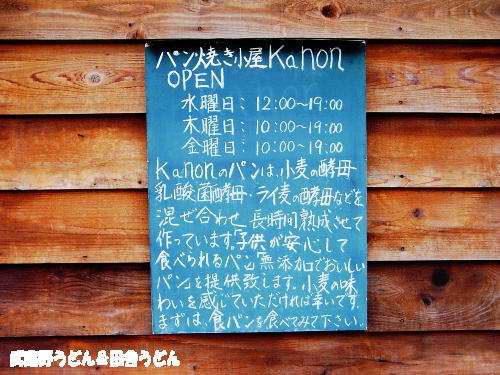 パン焼き小屋Kanon
OPEN
水曜日：12:00～19:00
木曜日：10:00～19:00
金曜日：10:00～19:00
Kanonのパンは、小麦の酵母
乳酸菌酵母・ライ麦の酵母などを
混ぜ合わせ、長時間熟成させて
作っています。子供が安心して
食べられるパン、無添加でおいしい
パンを提供致します。小麦の味
わいを感じていただければ幸いです。
まずは、食パンを食べてみて下さい。
武蔵野うどん＆田舎うどん